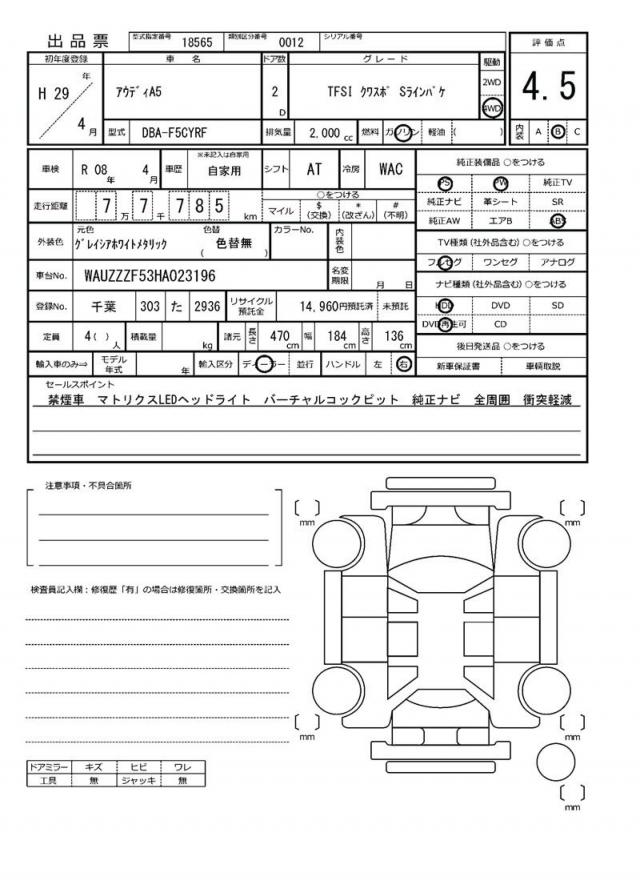 出品票 型式指定番号 18565 類別区分番号 0012 シリアル番号
初年度登録 車 名 ドア数 グレード 駆動 評価点
H 29 年 4 月 アウディA5 2 D TFSI クワスポ Sラインパケ 2WD 4WD 4.5
型式 DBA-F5CYRF 排気量 2,000 cc 燃料 ガソリン 軽油 ( ) 内装 A B C
車検 R 08 年 4 月 車歴 ※未記入は自家用 自家用 シフト AT 冷房 WAC
純正装備品 ○をつける
PS PW 純正TV
純正ナビ 革シート SR
純正AW エアB ABS
走行距離 7 万 7 千 7 8 5 km ○をつける
マイル $ (交換) * (改ざん) # (不明)
TV種類 (社外品含む) ○をつける
フルセグ ワンセグ アナログ
外装色 元色 グレイシアホワイトメタリック 色替 ( 色替無 ) カラーNo. 内装色
車台No. WAUZZZF53HA023196 名変期限 月 日
ナビ種類 (社外品含む) ○をつける
HDD DVD SD
DVD再生可 CD
登録No. 千葉 303 た 2936 リサイクル預託金 14,960円預託済 未預託
定員 4( ) 人 積載量 kg 諸元 長さ 470 cm 幅 184 cm 高さ 136 cm
後日発送品 ○をつける
新車保証書 車輌取説
輸入車のみ⇒ モデル年式 年 輸入区分 ディーラー 並行 ハンドル 左 右
セールスポイント
禁煙車 マトリクスLEDヘッドライト バーチャルコックピット 純正ナビ 全周囲 衝突軽減
注意事項・不具合箇所
検査員記入欄：修復歴「有」の場合は修復箇所・交換箇所を記入
[ ] mm
[ ] mm
[ ] mm
[ ] mm
[ ] mm
ドアミラー キズ ヒビ ワレ
工具 無 ジャッキ 無